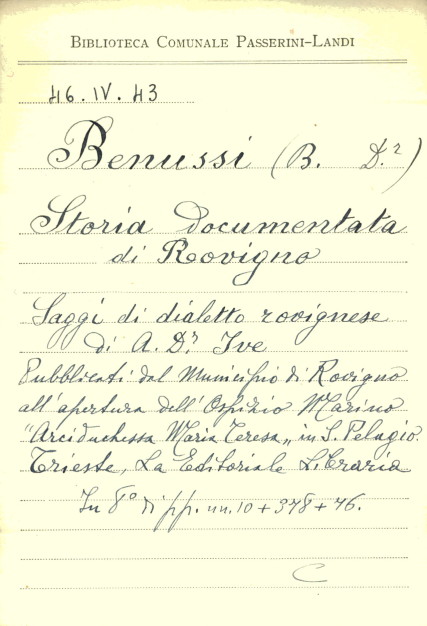 BIBLIOTECA COMUNALE PASSERINI-LANDI
46.IV.43
Benussi (B. D.r)
Storia documentata
di Rovigno
Saggi di dialetto rovignese
di A. D.r Ive
Pubblicati dal Municipio di Rovigno
all'apertura dell'Ospizio Marino
"Arciduchessa Maria Teresa" in S. Pelagio.
Trieste, La Editoriale Libraria
In 8° di pp. nn. 10 + 378 + 46.
C